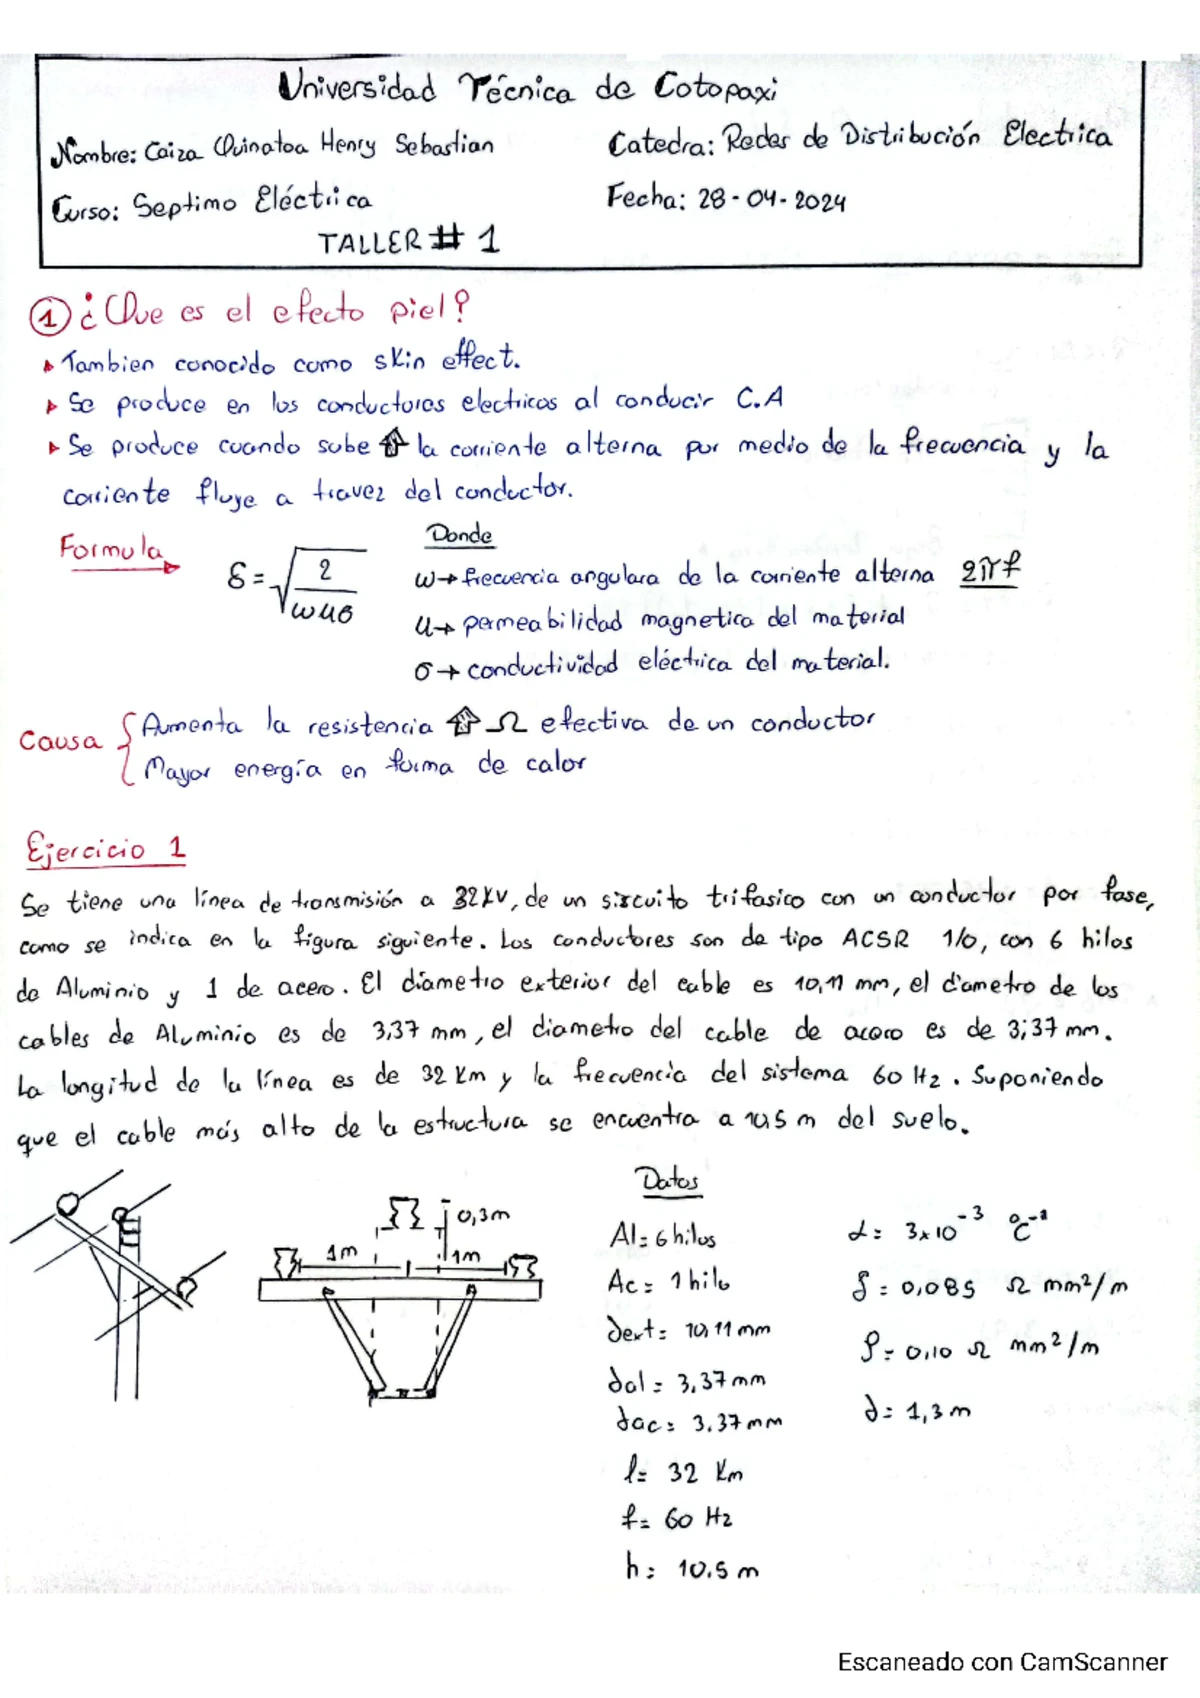 Universidad Técnica de Cotopaxi
Nombre: Caiza Quinatoa Henry Sebastian
Catedra: Redes de Distribución Electrica
Curso: Septimo Eléctrica
Fecha: 28-04-2024
TALLER # 1
① ¿Que es el efecto piel?
Tambien conocido como skin effect.
Se produce en los conductores electricos al conducir C.A
Se produce cuando sube ⇧ la corriente alterna por medio de la frecuencia y la
corriente fluye a travez del conductor.
Formula
δ = √(2/ωμσ)
Donde
ω→ frecuencia angulara de la corriente alterna 2πf
μ→ permeabilidad magnetica del material
σ→ conductividad eléctrica del material.
Causa { Aumenta la resistencia ⇧ Ω efectiva de un conductor
Mayor energía en forma de calor
Ejercicio 1
Se tiene una línea de transmisión a 32kV, de un sircuito trifasico con un conductor por fase,
como se indica en la figura siguiente. Los conductores son de tipo ACSR 1/0, con 6 hilos
de Aluminio y 1 de acero. El díametro exterior del cable es 10,11 mm, el díametro de los
cables de Aluminio es de 3,37 mm, el diametro del cable de acero es de 3,37 mm.
La longitud de la línea es de 32 Km y la frecuencia del sistema 60 Hz. Suponiendo
que el cable más alto de la estructura se encuentra a 10,5 m del suelo.
0,3m
1m
1m
Datos
Al= 6 hilos
Ac= 1 hilo
dext= 10,11 mm
dal= 3,37 mm
dac= 3.37 mm
l= 32 Km
f= 60 Hz
h= 10.5 m
α= 3x10⁻³ °C⁻¹
ρ= 0,085 Ω mm²/m
ρ= 0,10 Ω mm²/m
d= 1,3 m
Escaneado con CamScanner